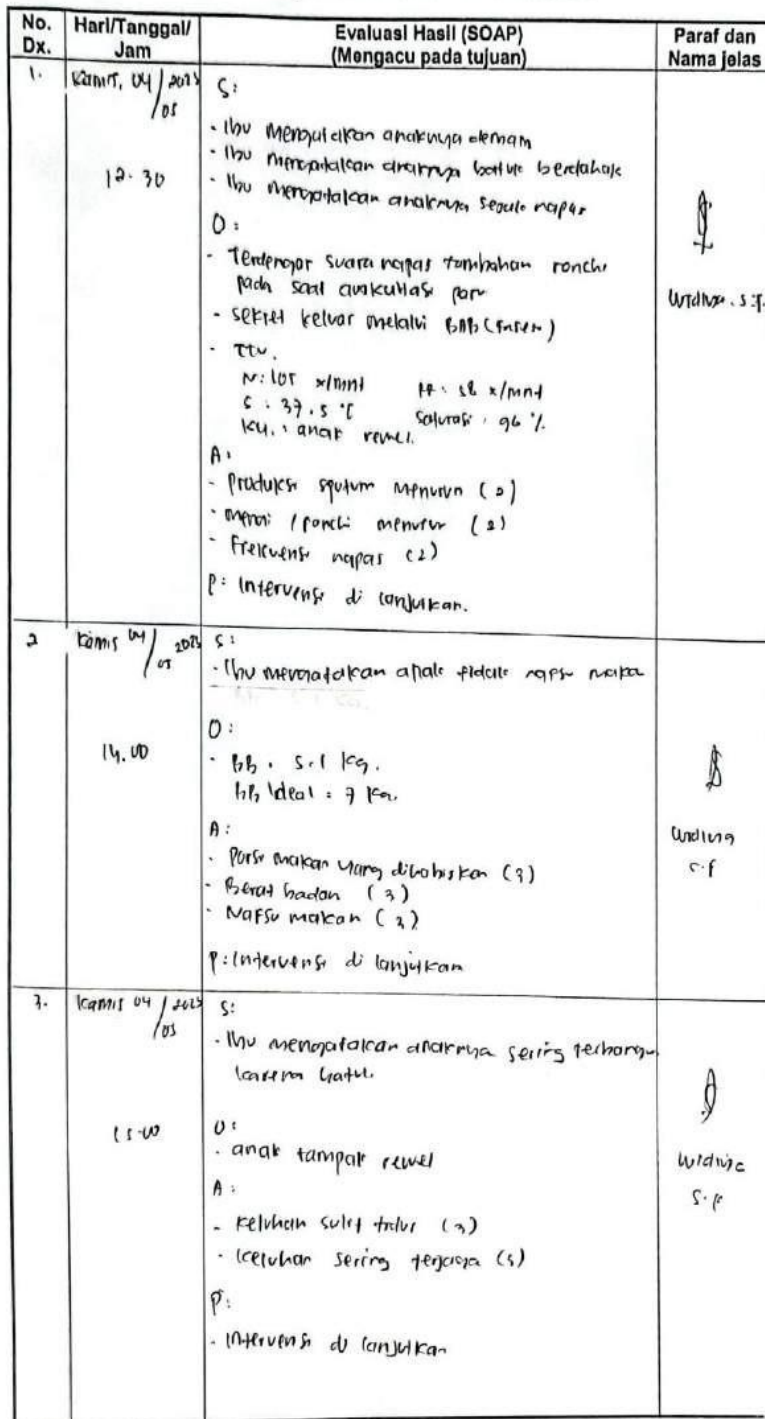 No. Dx.
Hari/Tanggal/ Jam
Evaluasi Hasil (SOAP)
(Mengacu pada tujuan)
Paraf dan Nama jelas
1.
Kamis, 04/05 2023
12.30
S:
- Ibu mengatakan anaknya demam
- Ibu mengatakan anaknya batuk berdahak
- Ibu mengatakan anaknya sesak napas
O:
- Terdengar suara napas tambahan ronchi
pada saat auskultasi paru
- Sekret keluar melalui BAB (feses)
- TTV.
N: 105 x/mnt
RR: 58 x/mnt
S: 37.5 °C
Saturasi: 96 %
KU: anak rewel.
A:
- Produksi sputum menurun (2)
- mengi / ronchi menurun (2)
- Frekuensi napas (2)
P: Intervensi di lanjutkan.
2
Kamis 04/05 2023
14.00
S:
- Ibu mengatakan anak tidak nafsu makan
O:
- BB. 5.1 kg.
BB Ideal: 7 kg.
A:
- Porsi makan yang dihabiskan (3)
- Berat badan (3)
- Nafsu makan (3)
P: Intervensi di lanjutkan
3.
Kamis 04/05 2023
15.00
S:
- Ibu mengatakan anaknya sering terbangun
karena batuk.
O:
- anak tampak rewel
A:
- Keluhan sulit tidur (3)
- Keluhan sering terjaga (3)
P:
- Intervensi di lanjutkan